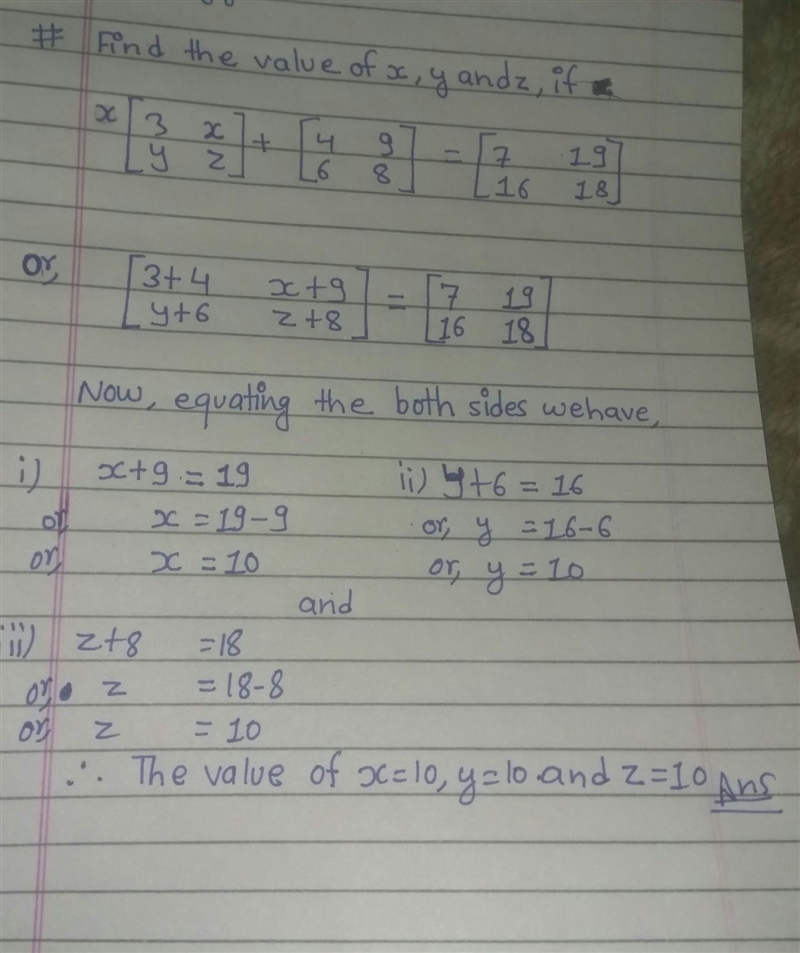 # Find the value of x, y and z, if
x [3 x] + [4 9] = [7 19]
[y z] [6 8] [16 18]
or, [3+4 x+9] = [7 19]
[y+6 z+8] [16 18]
Now, equating the both sides we have,
i) x+9 = 19 ii) y+6 = 16
or x = 19-9 or, y = 16-6
or, x = 10 or, y = 10
and
iii) z+8 = 18
or, z = 18-8
or, z = 10
∴ The value of x=10, y=10 and z=10 Ans